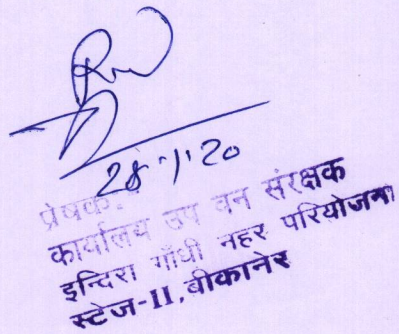 28/1/20
प्रेषक:
कार्यालय उप वन संरक्षक
इन्दिरा गाँधी नहर परियोजना
स्टेज-II, बीकानेर